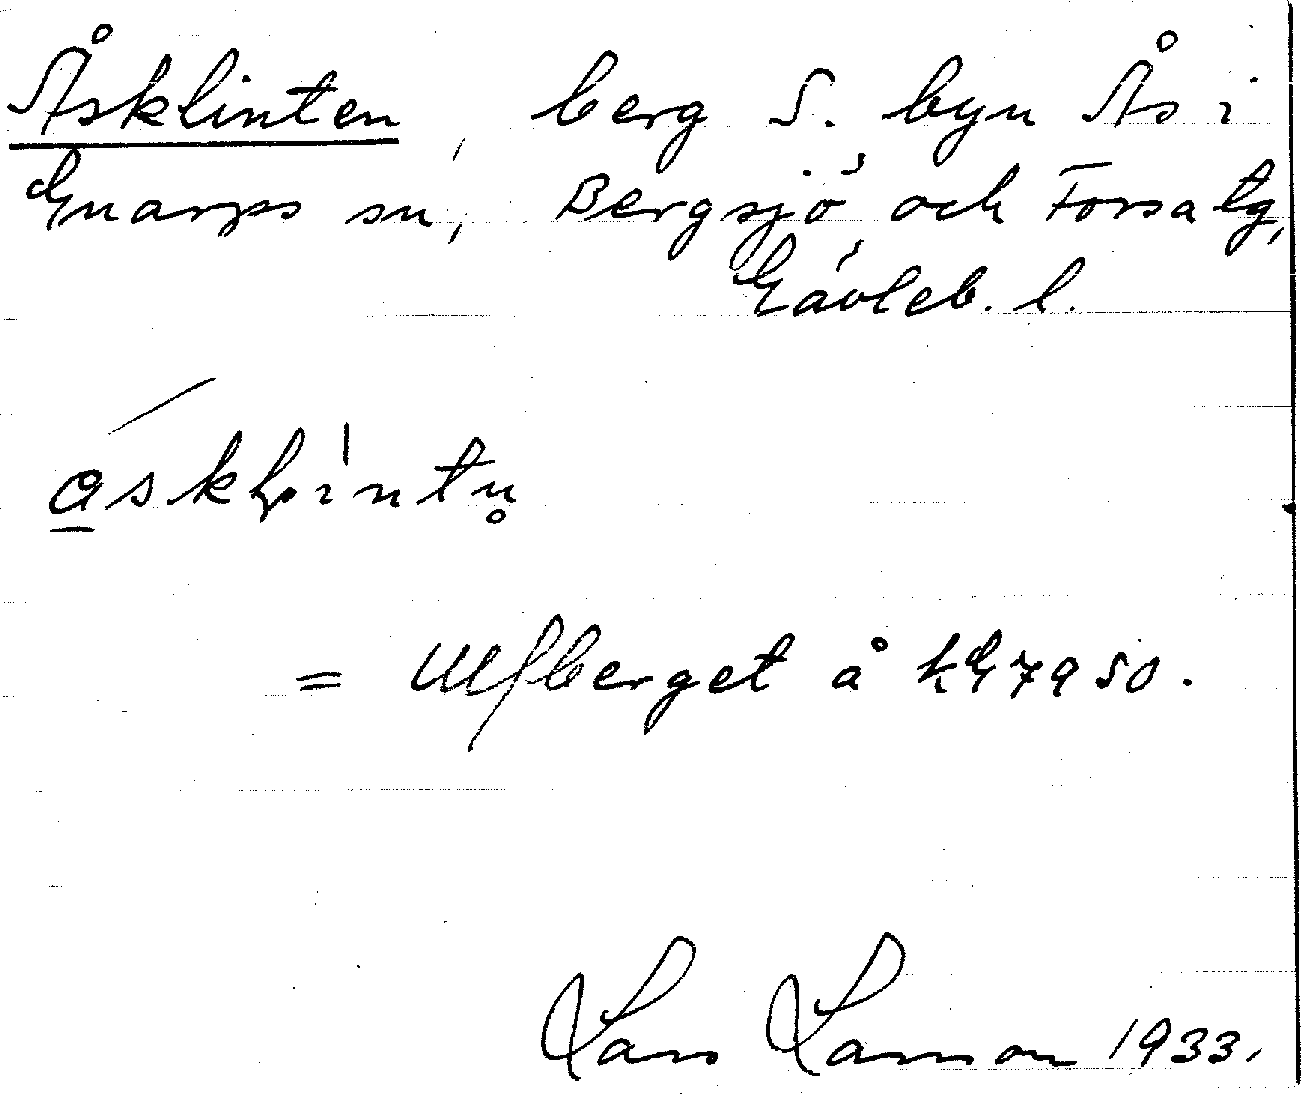 Åsklinten, berg S. byn Ås i
Gnarps sn, Bergsjö och Forsa tg,
Gävleb. l.
= Ulfberget å kG 79 50.
Lars Larsson 1933.